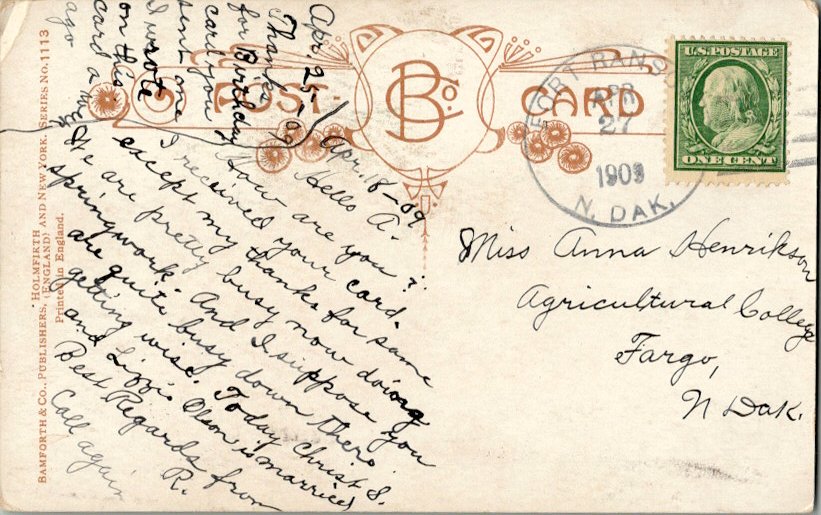 POST CARD
B Co. L
U.S. POSTAGE
ONE CENT
FORT RANS
APR
27
1909
N. DAK.
BAMFORTH & CO., PUBLISHERS, HOLMFIRTH
(ENGLAND) AND NEW YORK. SERIES No. 1113
Printed in England.
Miss Anna Henrikson
Agricultural College
Fargo,
N Dak.
Apr. 18 - 09
Hello A.
How are you?
I received your card.
except my thanks for same
We are pretty busy now doiong
springwork. And I suppose you
are quite busy down there
getting wise. Today Christ S.
and Lizzie Olson is married
Best Regards from
R.
Call again
Apr. 25 - 09
Thanks
for Birthday
card you
sent me
I wrote
on this
card a week
ago